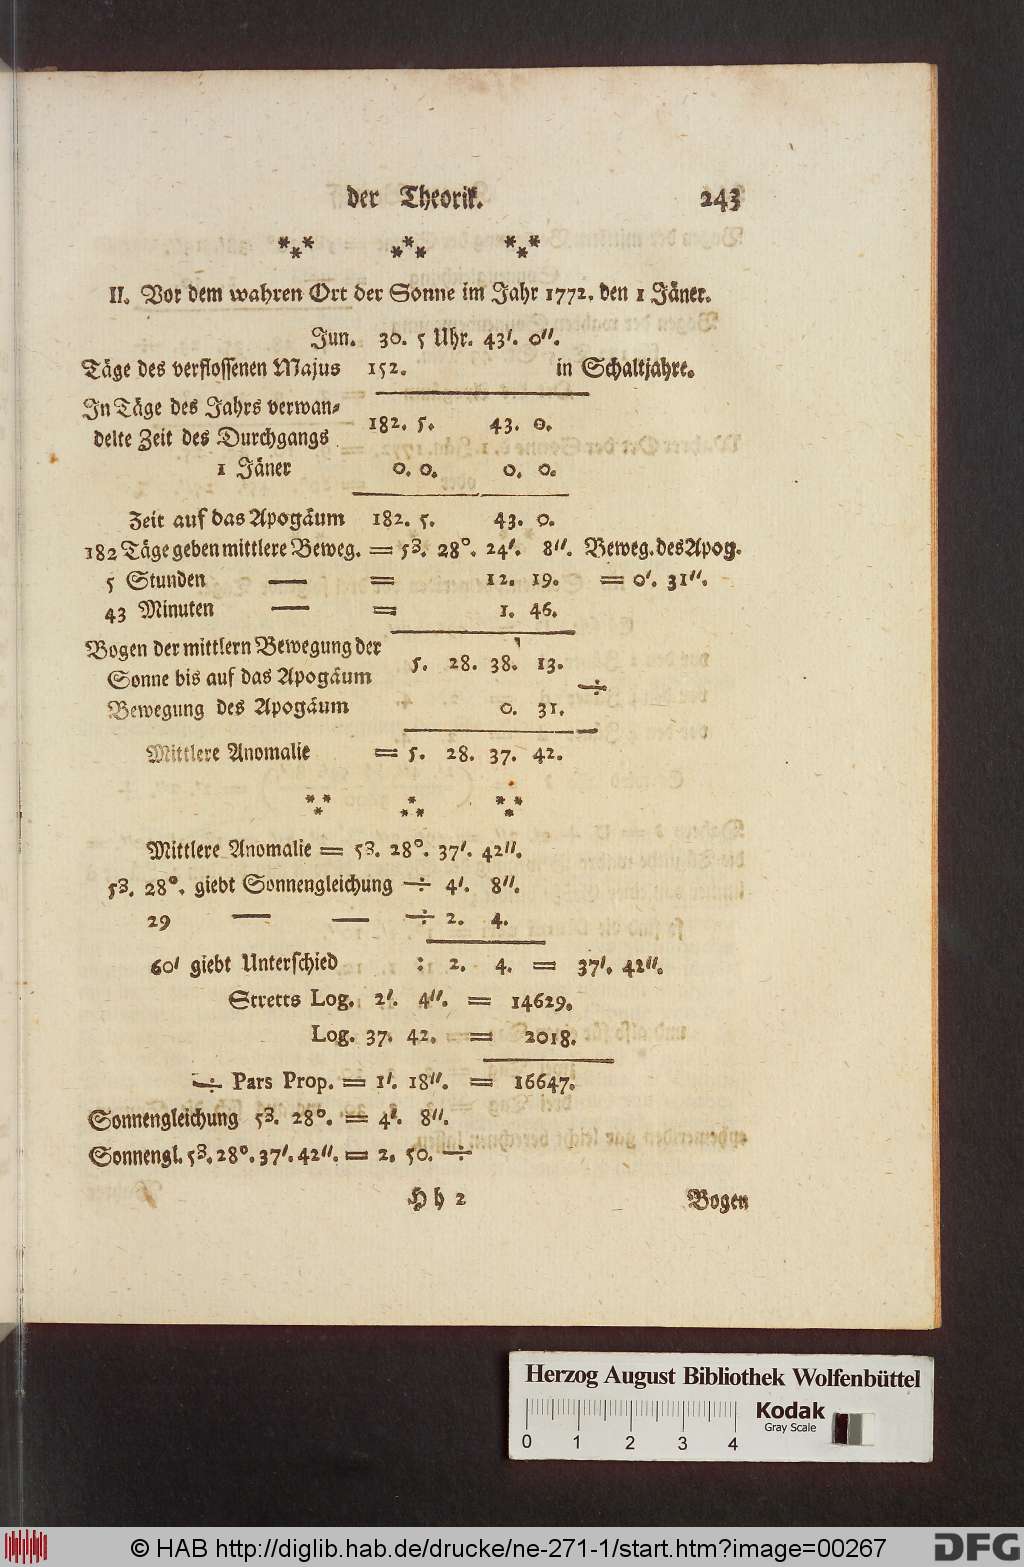 der Theorik. 243
*** *** ***
II. Vor dem wahren Ort der Sonne im Jahr 1772. den 1 Jäner.
Jun. 30. 5 Uhr. 43′. 0″.
Täge des verflossenen Majus 152. in Schaltjahre.
In Täge des Jahrs verwan⸗
delte Zeit des Durchgangs 182. 5. 43. 0.
1 Jäner 0. 0. 0. 0.
Zeit auf das Apogäum 182. 5. 43. 0.
182 Täge geben mittlere Beweg. = 5З. 28°. 24′. 8″. Beweg. des Apog.
5 Stunden — = 12. 19. = 0′. 31″.
43 Minuten — = 1. 46.
Bogen der mittlern Bewegung der
Sonne bis auf das Apogäum 5. 28. 38. 13.
÷
Bewegung des Apogäum 0. 31.
Mittlere Anomalie = 5. 28. 37. 42.
*** *** ***
Mittlere Anomalie = 5З. 28°. 37′. 42″.
5З. 28°. giebt Sonnengleichung ÷ 4′. 8″.
29 — — ÷ 2. 4.
60′ giebt Unterschied : 2. 4. = 37′. 42″.
Stretts Log. 2′. 4″. = 14629.
Log. 37. 42. = 2018.
÷ Pars Prop. = 1′. 18″. = 16647.
Sonnengleichung 5З. 28°. = 4′. 8″.
Sonnengl. 5З. 28°. 37′. 42″. = 2. 50. ÷
H h 2 Bogen
Herzog August Bibliothek Wolfenbüttel
Kodak
Gray Scale
0 1 2 3 4
© HAB http://diglib.hab.de/drucke/ne-271-1/start.htm?image=00267
DFG